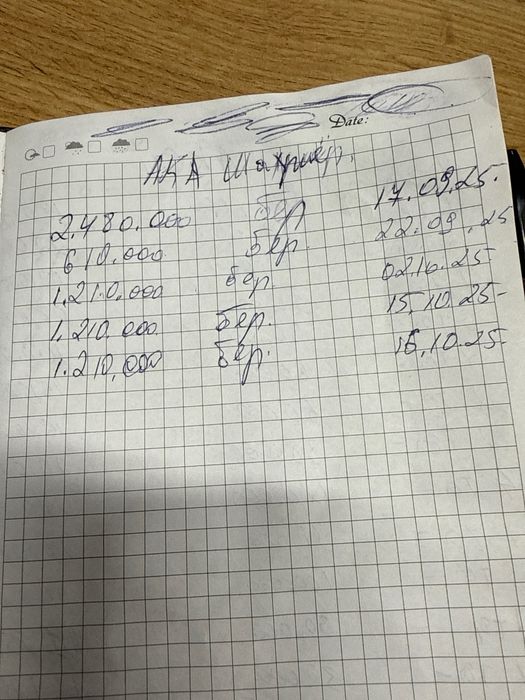 Date:
АКА Шахриёр.
2.480.000 бер 17.09.25.
610.000 бер. 22.09.25
1.210.000 бер 02.10.25
1.210.000. бер. 15.10.25
1.210.000 бер. 16.10.25